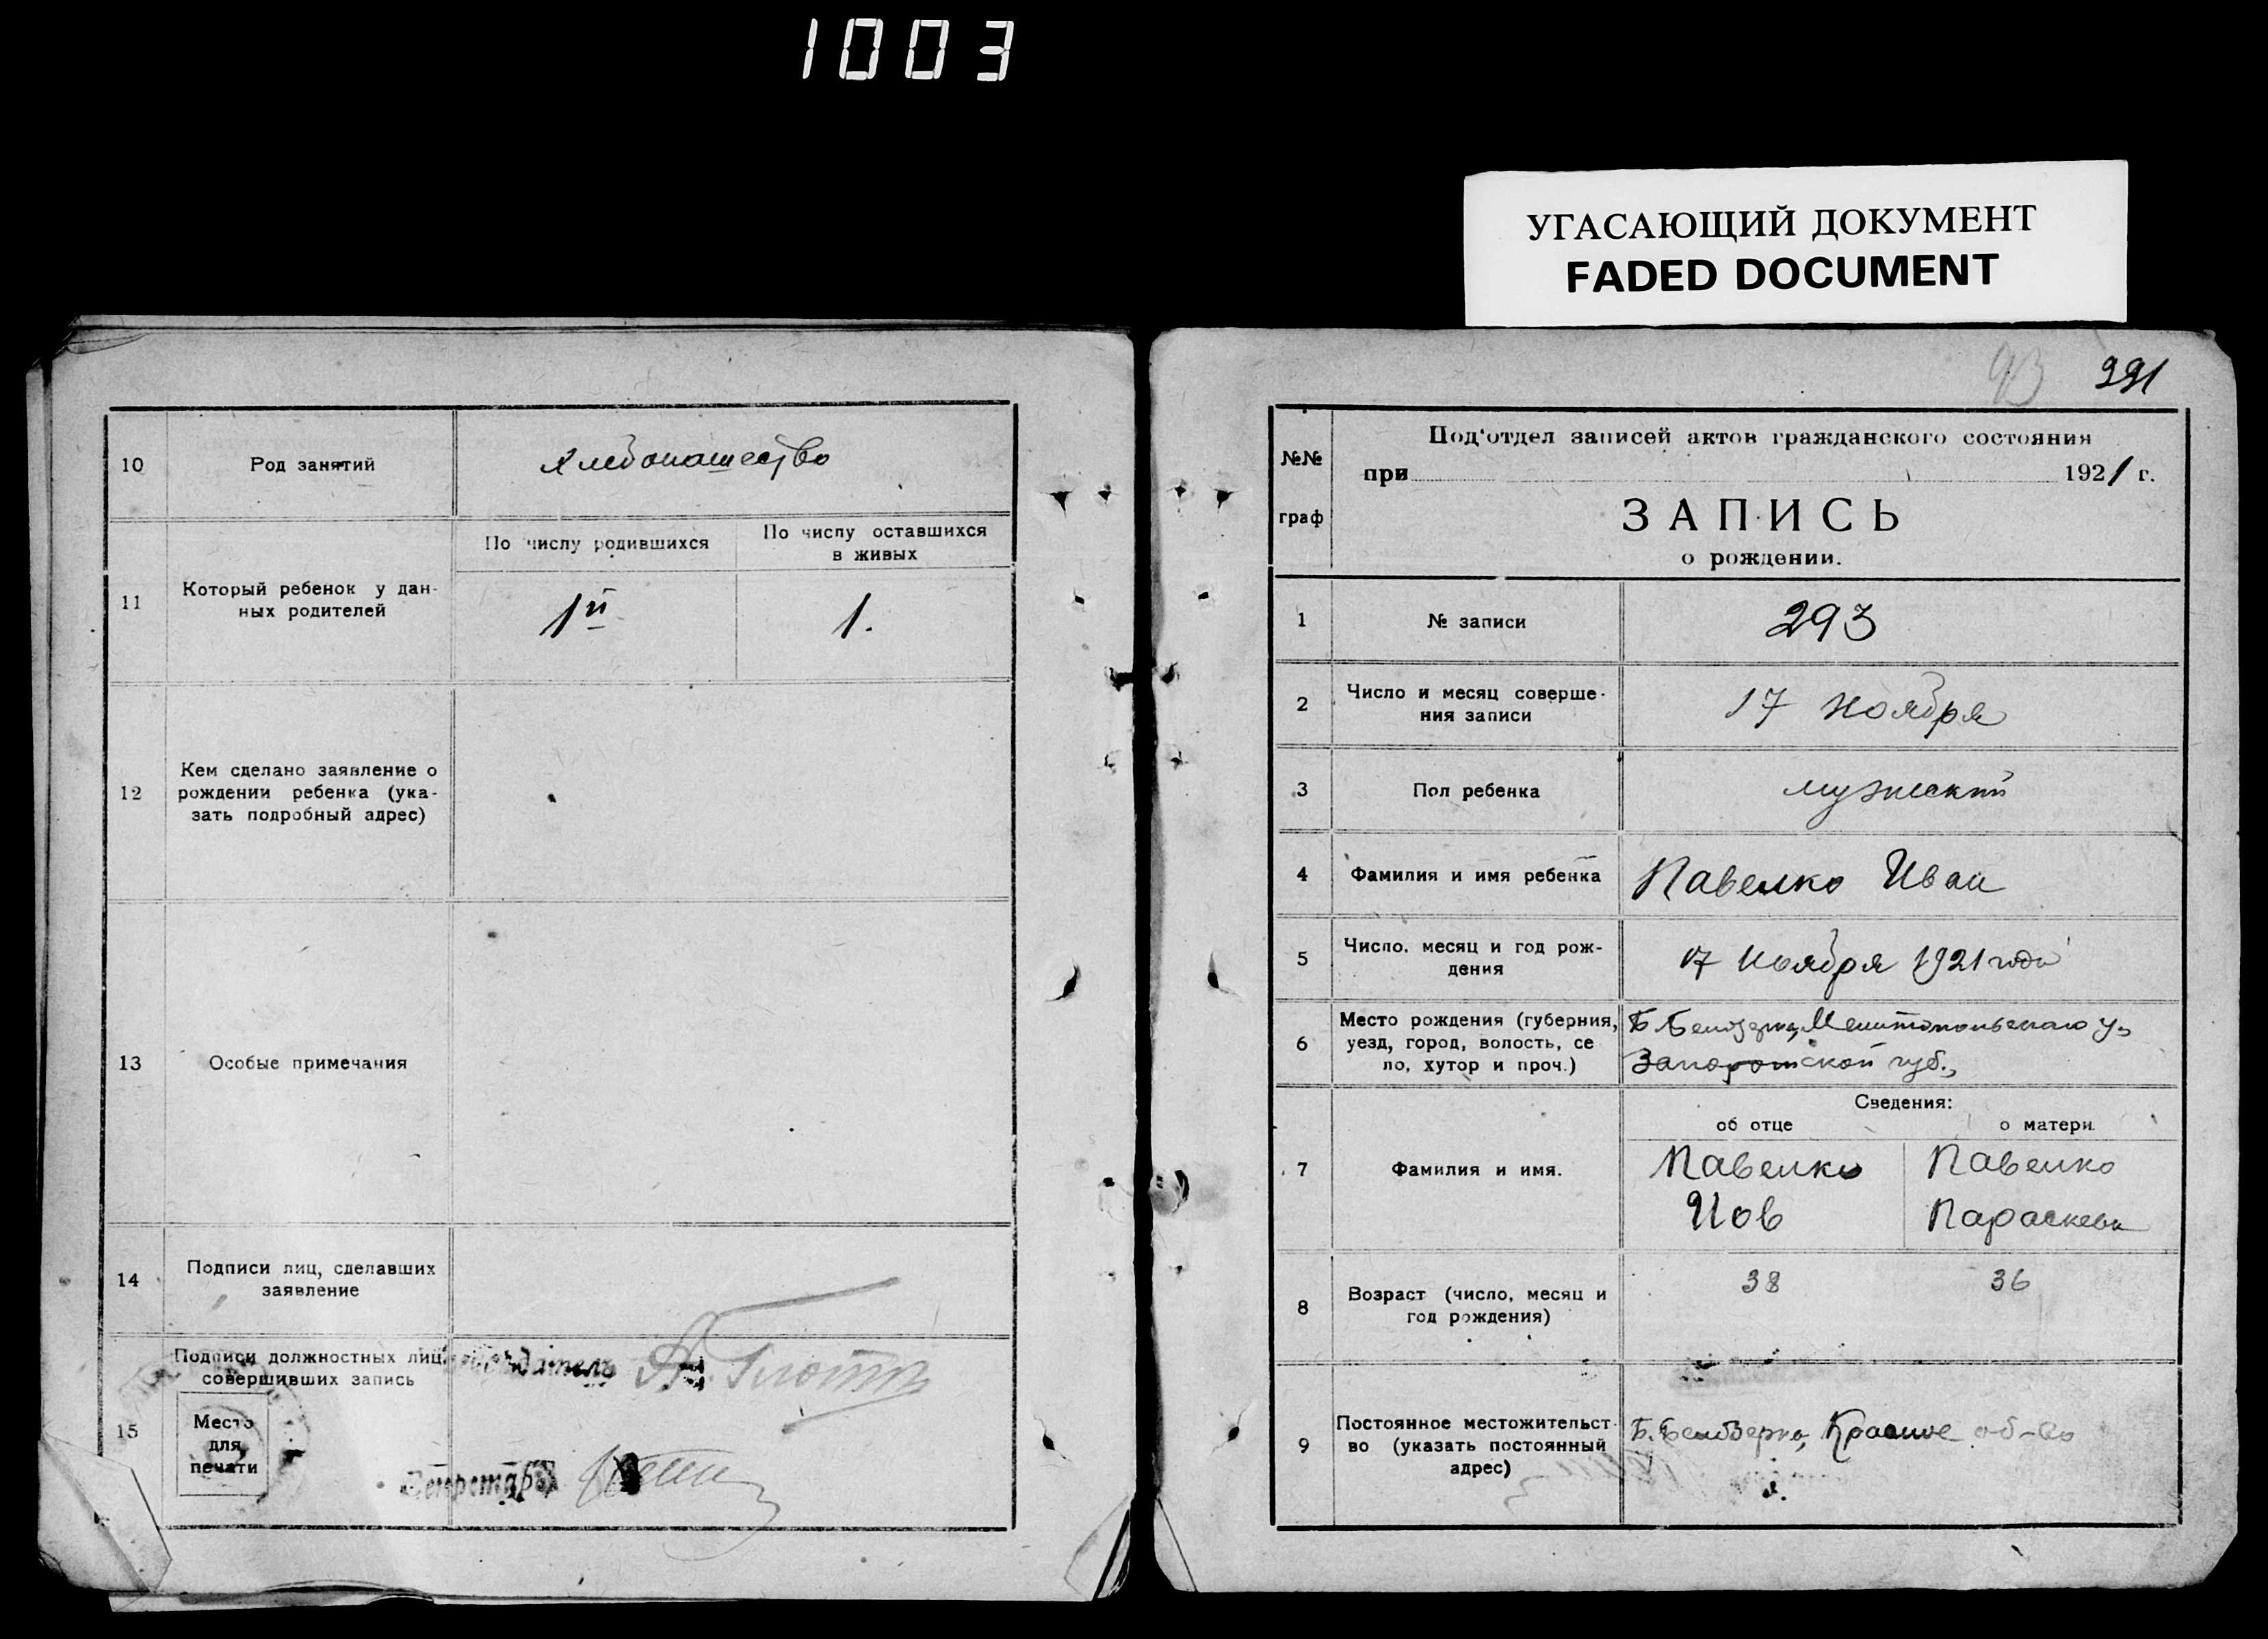 1003
УГАСАЮЩИЙ ДОКУМЕНТ
FADED DOCUMENT
10
Род занятий
Хлебопашество
11
Который ребенок у дан-
ных родителей
По числу родившихся
По числу оставшихся
в живых
1й
1.
12
Кем сделано заявление о
рождении ребенка (ука-
зать подробный адрес)
13
Особые примечания
14
Подписи лиц, сделавших
заявление
15
Подписи должностных лиц,
совершивших запись
Место
для
печати
Секретарь
93 291
№№
граф
Под'отдел записей актов гражданского состояния
при 1921 г.
ЗАПИСЬ
о рождении.
1
№ записи
293
2
Число и месяц соверше-
ния записи
17 ноября
3
Пол ребенка
мужской
4
Фамилия и имя ребенка
Павелко Иван
5
Число, месяц и год рож-
дения
17 Ноября 1921 года
6
Место рождения (губерния,
уезд, город, волость, се
ло, хутор и проч.)
Мелитопольского у,
ской губ.,
Сведения:
об отце
о матери
7
Фамилия и имя.
Павелко
Иов
Павелко
Параскева
8
Возраст (число, месяц и
год рождения)
38
36
9
Постоянное местожительст-
во (указать постоянный
адрес)
об-во